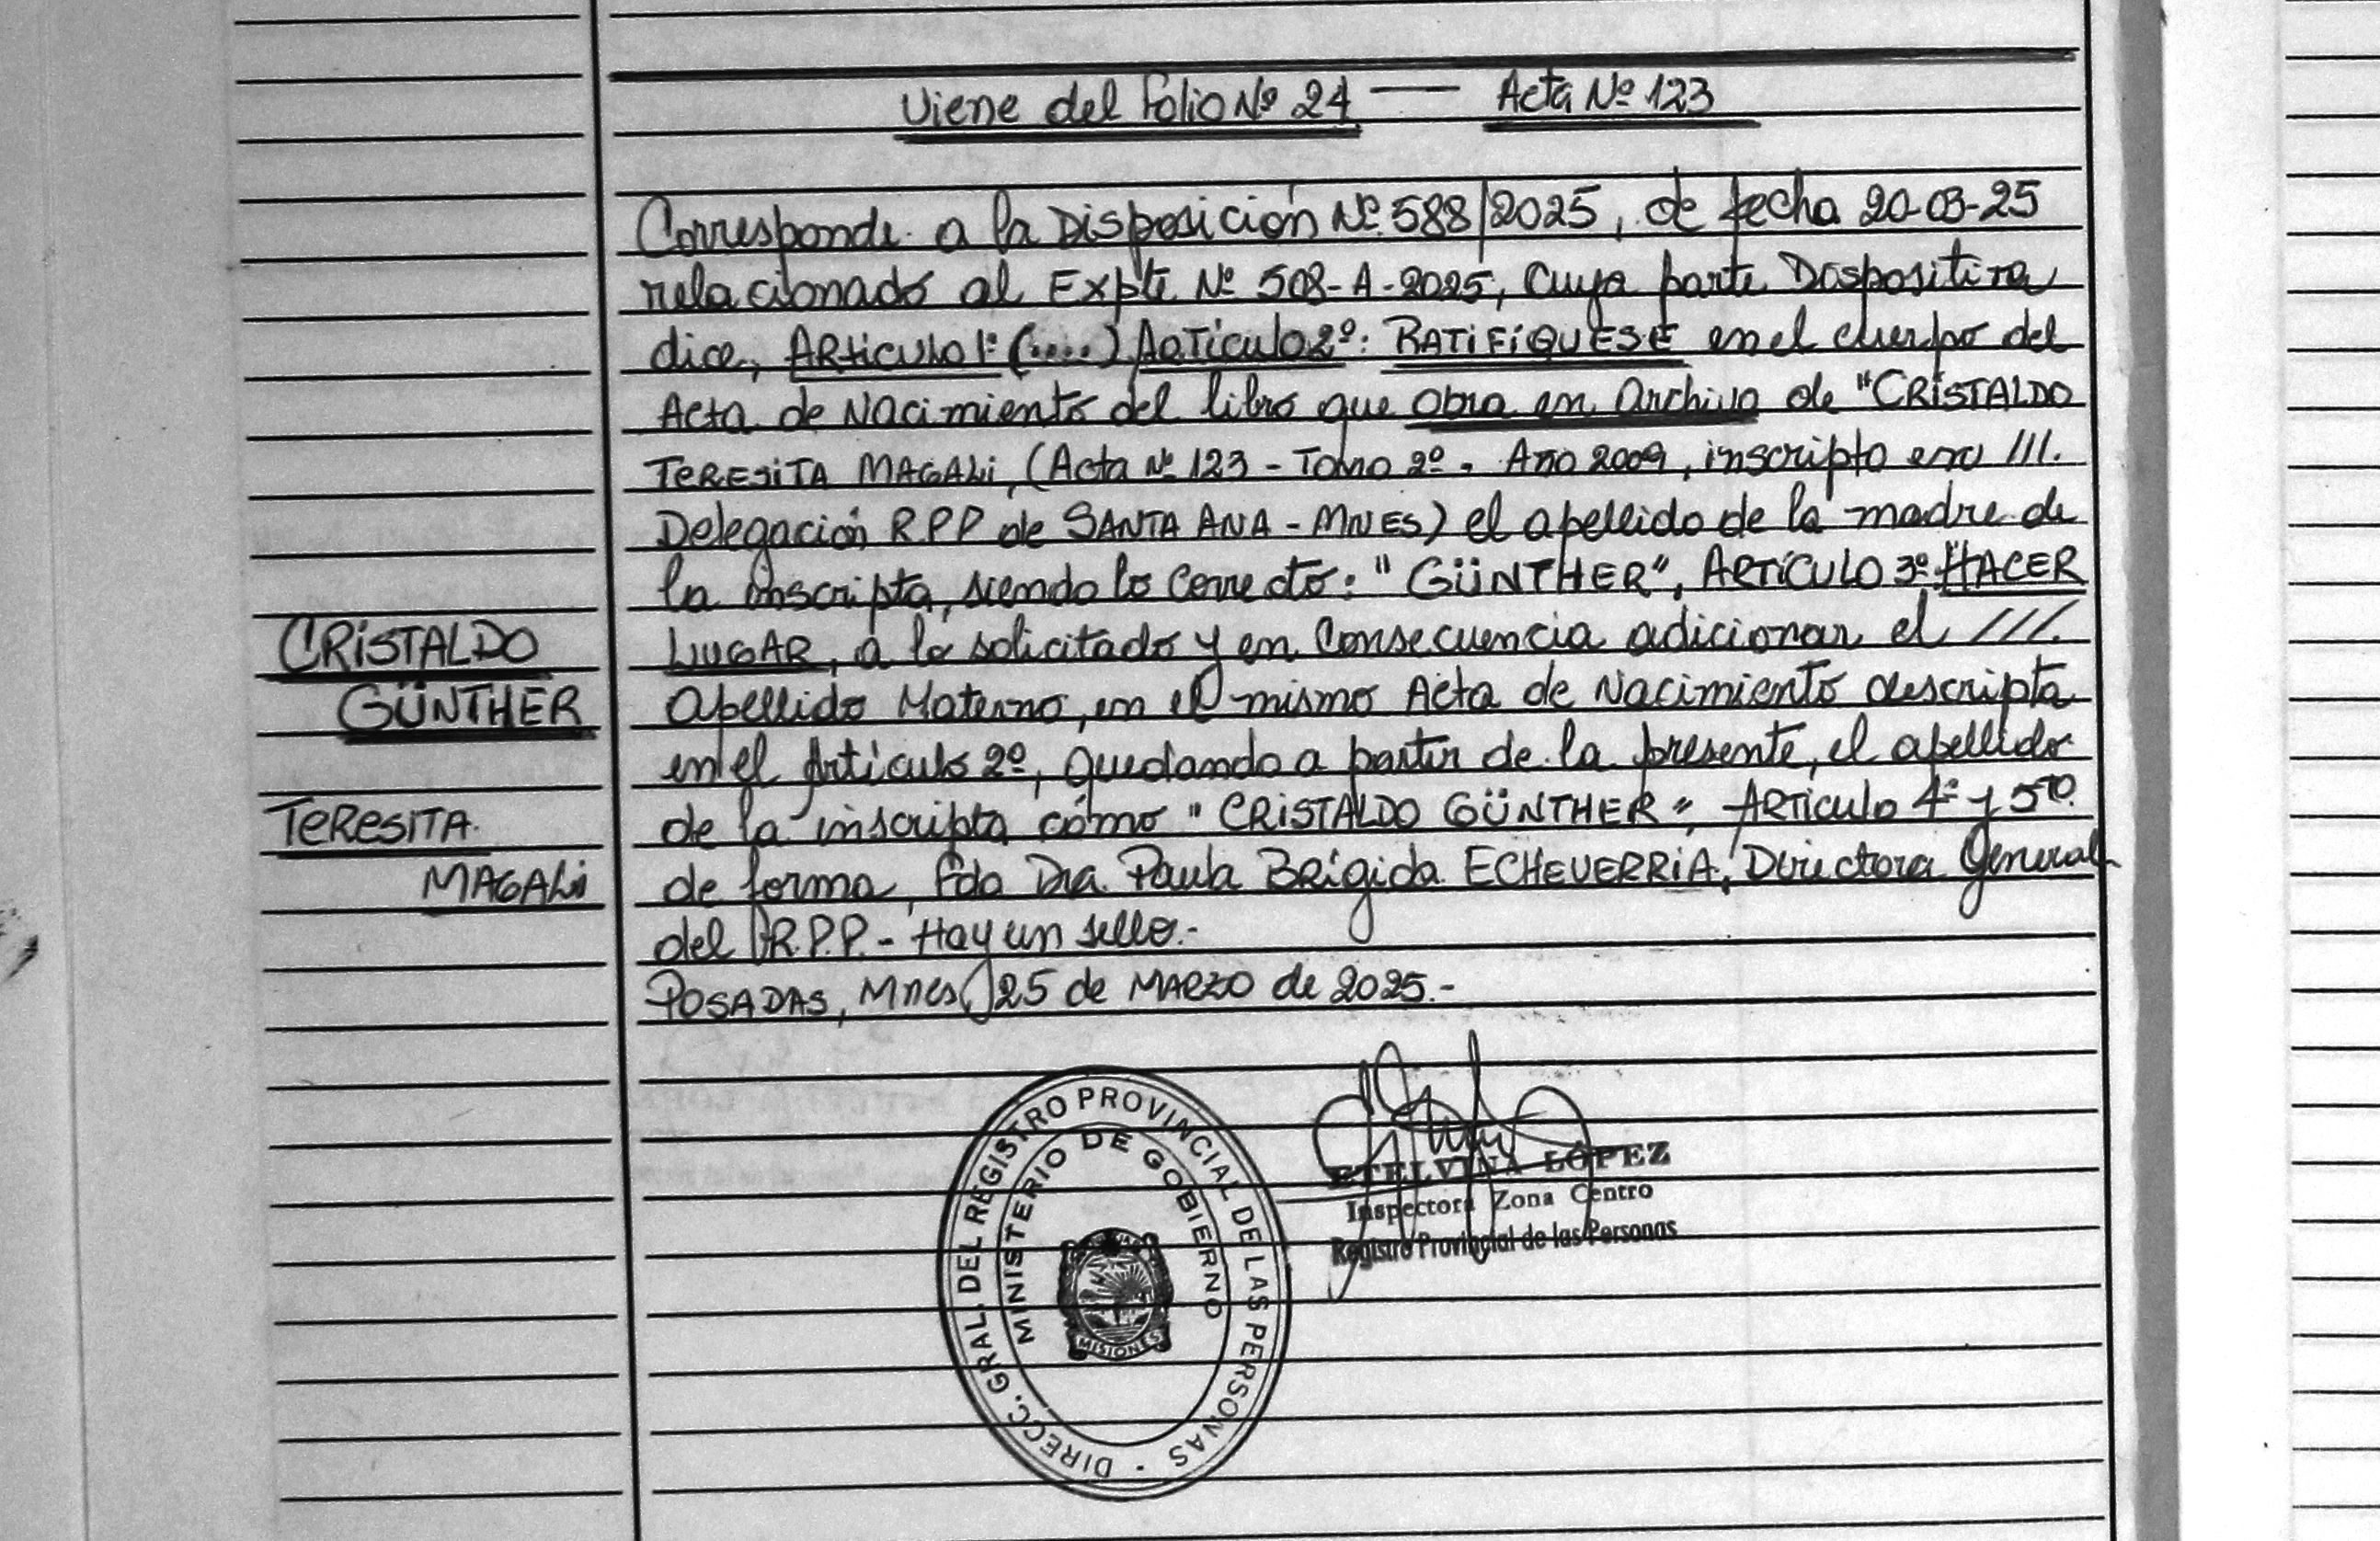 Viene del Folio Nº 24 — Acta Nº 123
Corresponde a la Disposición Nº 588/2025, de fecha 20-03-25
relacionado al Expte Nº 508-A-2025, cuya parte Dospositiva
dice, ARticulo 1º (....) ARTiculo 2º: RATIFÍQUESE en el cuerpo del
Acta de Nacimiento del libro que obra en Archivo de "CRISTALDO
TERESITA MAGALI, (Acta Nº 123 - Tomo 2º - Año 2009, inscripto en ///.
Delegación R.P.P de SANTA ANA - MNES) el apellido de la madre de
la inscripta, siendo lo correcto: "GÜNTHER", ARTÍCULO 3º HACER
LUGAR, a lo solicitado y en consecuencia adicionar el ///.
apellido Materno, en el mismo Acta de Nacimiento descripta
en el Artículo 2º, quedando a partir de la presente, el apellido
de la inscripta cómo "CRISTALDO GÜNTHER", ARTiculo 4º y 5to.
de forma, Fdo Dra. Paula Brígida ECHEVERRIA, Directora General
del R.P.P. - Hay un sello.-
POSADAS, Mnes, 25 de MARZO de 2025.-
CRISTALDO
GÜNTHER
TERESITA
MAGALI
DIRECC. GRAL. DEL REGISTRO PROVINCIAL DE LAS PERSONAS
MINISTERIO DE GOBIERNO
MISIONES
ETELVINA LÓPEZ
Inspectora Zona Centro
Registro Provincial de las Personas